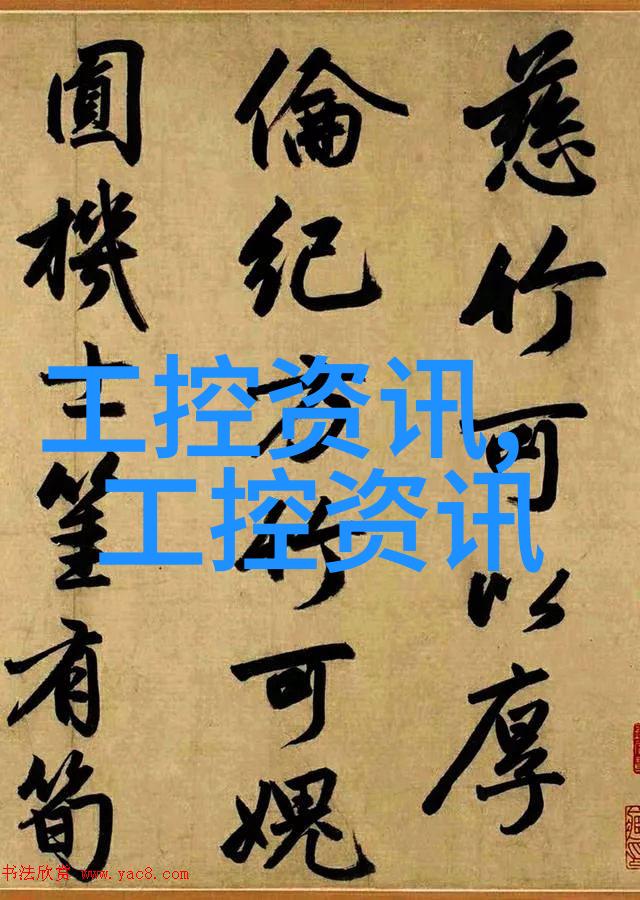 慈竹可以厚
倫紀方竹可媿
圓機士筀有筍
工控资讯,
工控资讯
书法欣赏 www.yac8.com